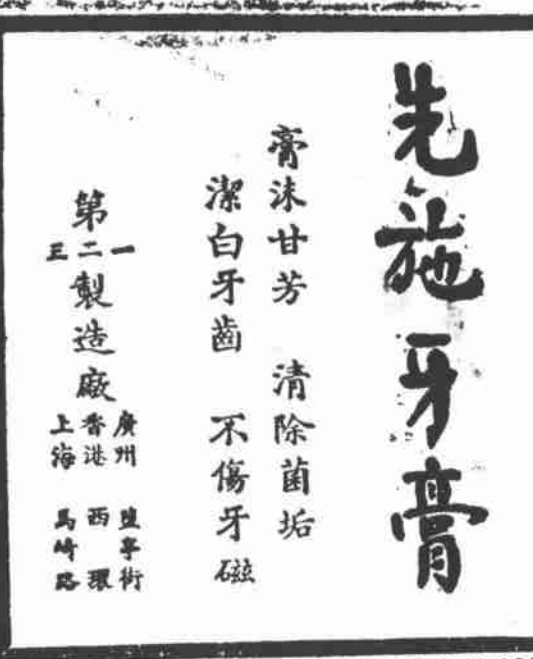 先施牙膏
膏沫甘芳 清除菌垢
潔白牙齒 不傷牙磁
第一二三製造廠
廣州 街
香港 西環
上海 馬崎路